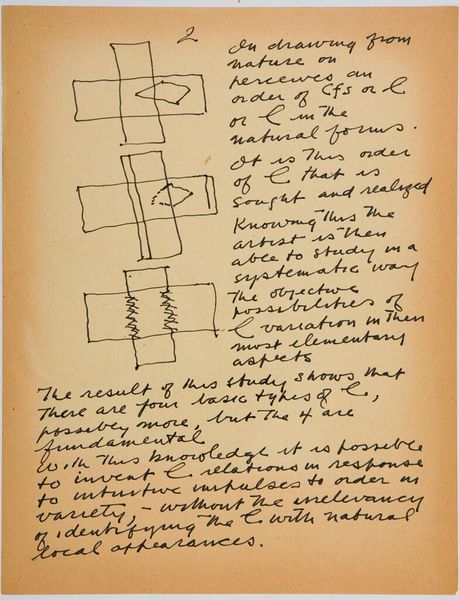 2
In drawing from
nature on
perceives an
order of CfS or C
or C in the
natural forms.
It is this order
of C that is
sought and realized
Knowing this the
artist is then
able to study in a
systematic way
the objective
possibilities of
C variation in their
most elementary
aspects
The result of this study shows that
there are four basic types of C,
possibly more, but the 4 are
fundamental
With this knowledge it is possible
to invent C relations in response
to intuitive impulses to order in
variety, – without the irrelevancy
of identifying the C with natural
local appearances.